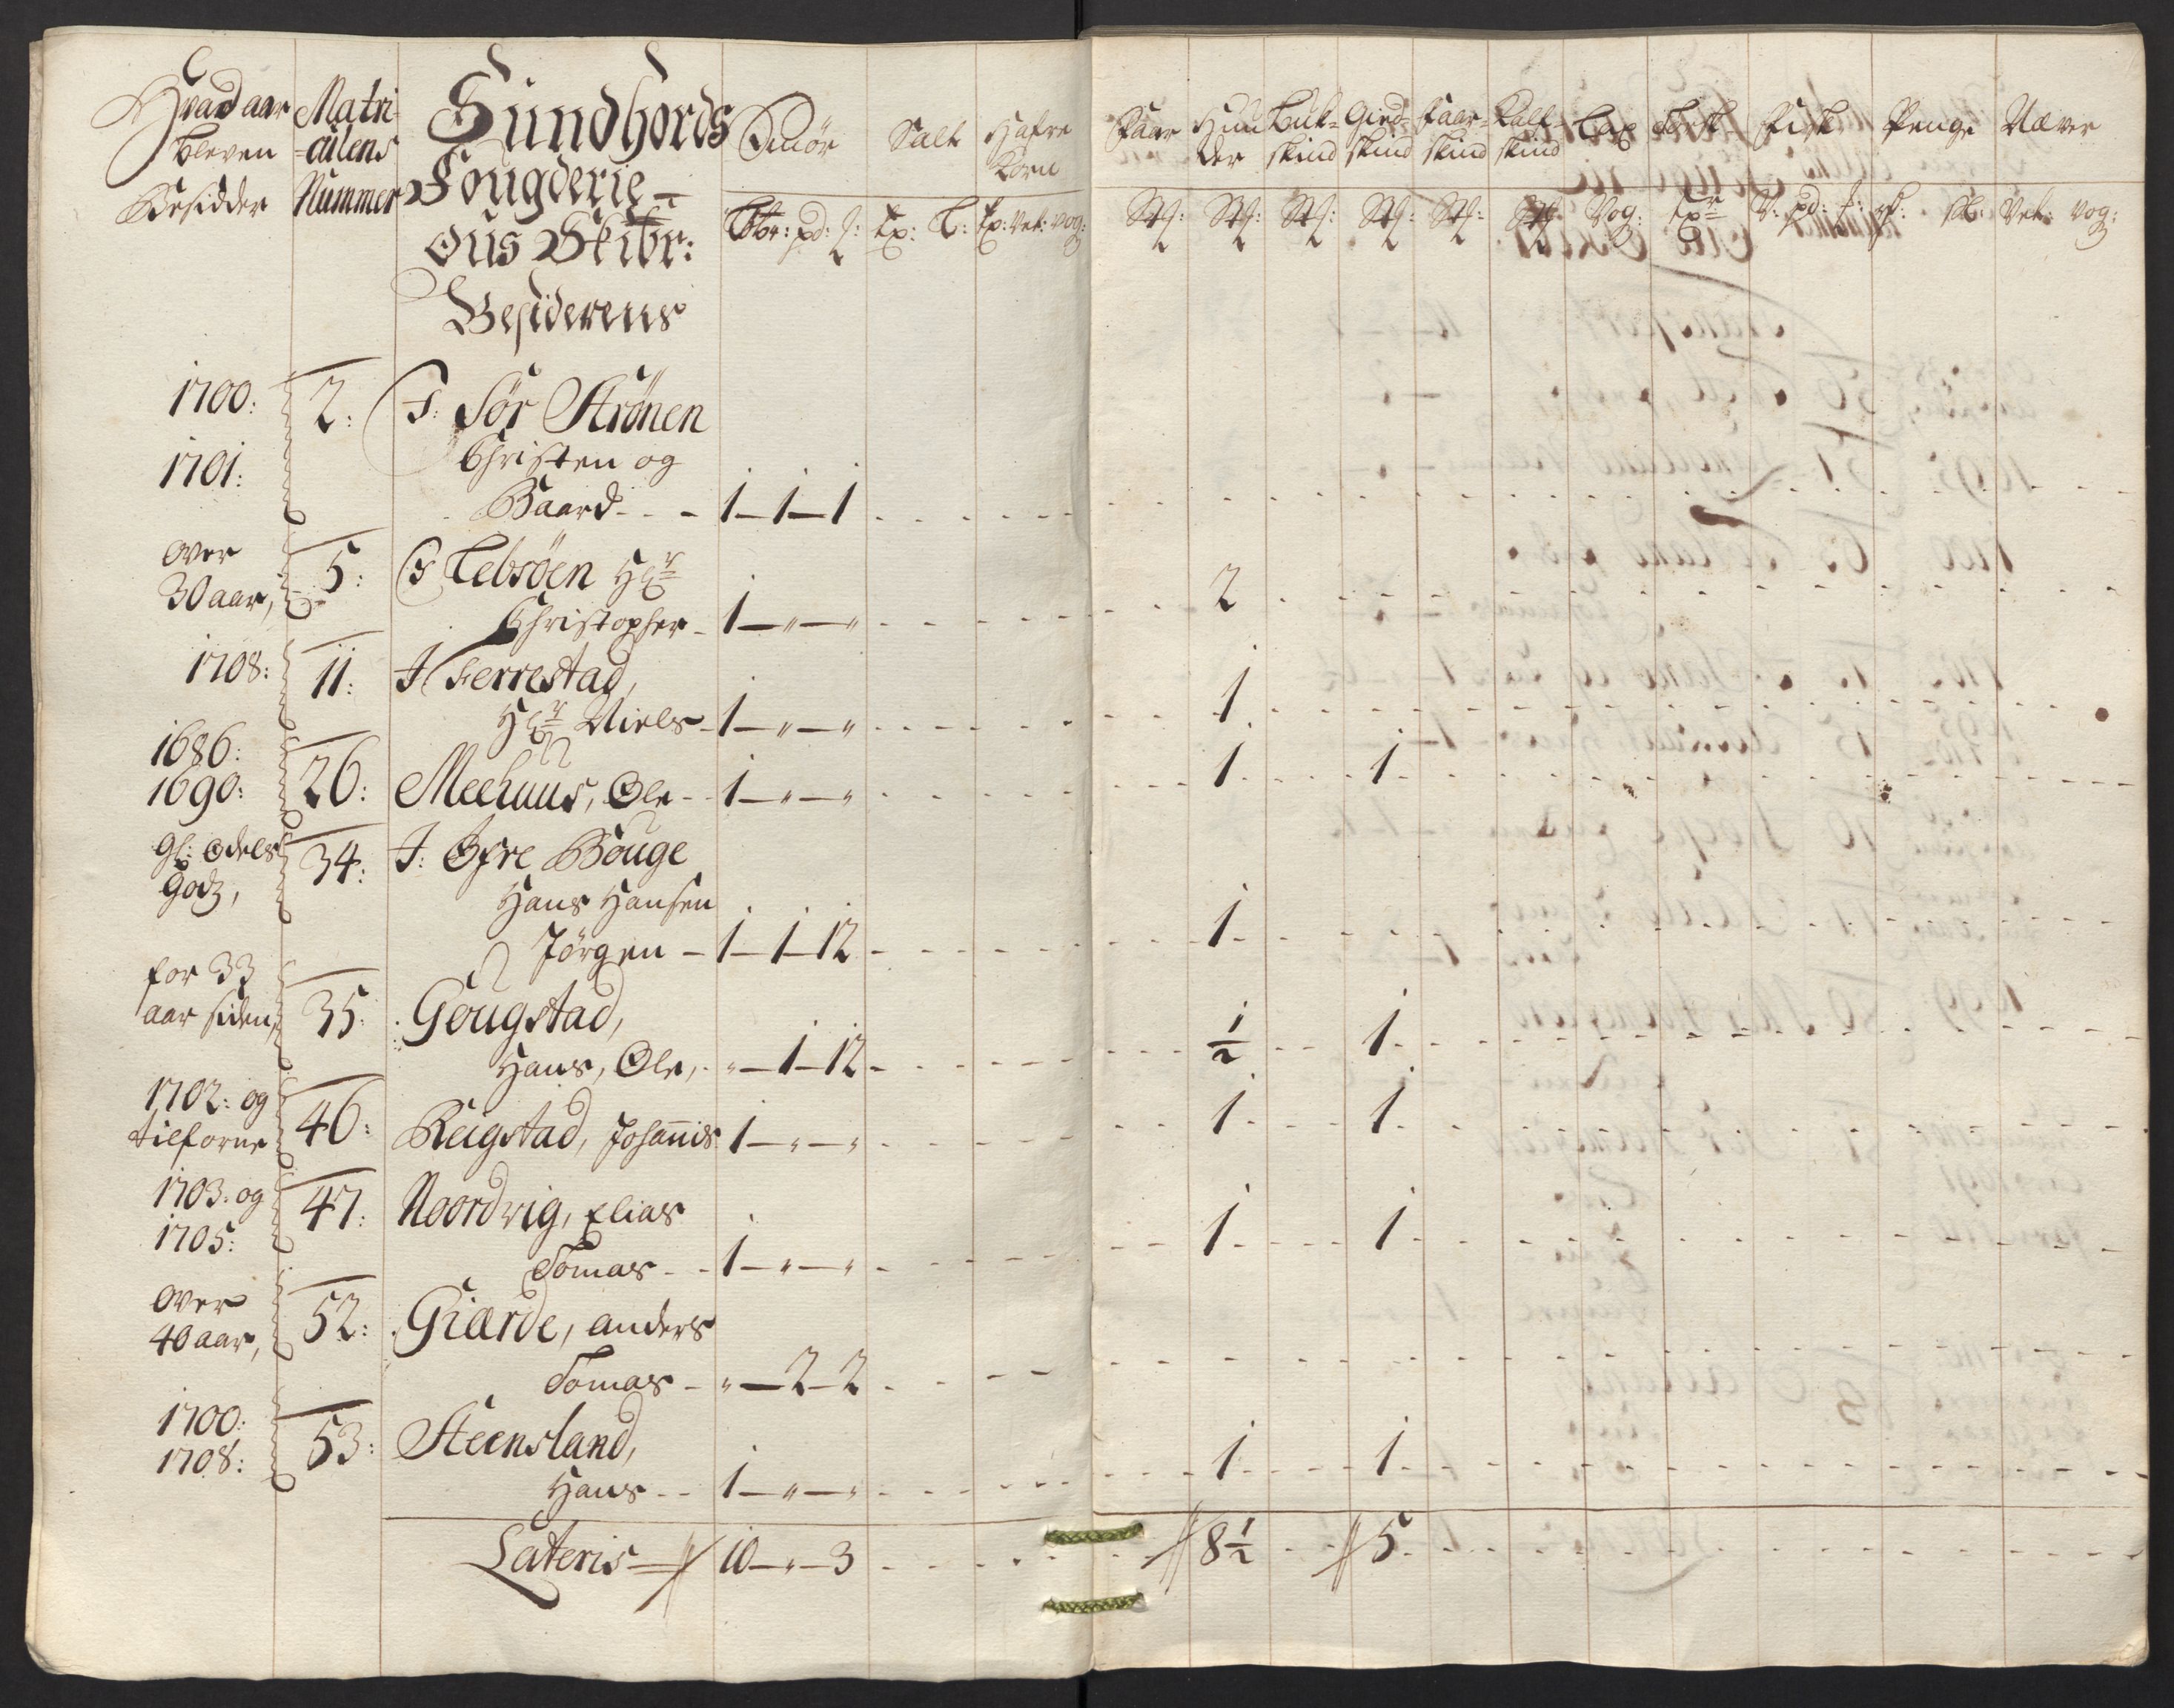 Hvad aar Matri- Sundhords Smör Salt Hafre Faar Huu Buk- Gied- Faar- Kalf- Lax Fisk Penge Næver
bleven culens Korn der skind skind skind skind
Besidder Nummer Fougderie
Ous Skibr: pd: Vog: pd: Vog:
Besiderens
1700: 2: Sör Strönen
1701: Christen og
Baard - - - 1 - 1 - 1
over 5: Lebsöen
30 aar, Christopher - 1 - " - " 2
1708: 11: Ferrestad,
Niels - 1 - " - " 1
1686: 26: Meehuus, Ole - - 1 - " - " 1 1
1690:
Gl: odels 34: J: Öfre Bouge
Godz, Hans Hansen
Jörgen - 1 - 1 - 12 1
for 33 35: Gougstad,
aar siden, Hans, Ole, - " - 1 - 12 1/2 1
1702: og 46: Reigstad, Johannis 1 - " - " 1 1
tilforne
1703: og 47: Noordvig, Elias
1705: Tomas - - 1 - " - " 1 1
over 52: Giærde, anders
40 aar, Tomas - " - 2 - 2
1700: 53: Steensland,
1708: Hans - - 1 - " - " 1 1
Lateris 10 - " - 3 8 1/2 5